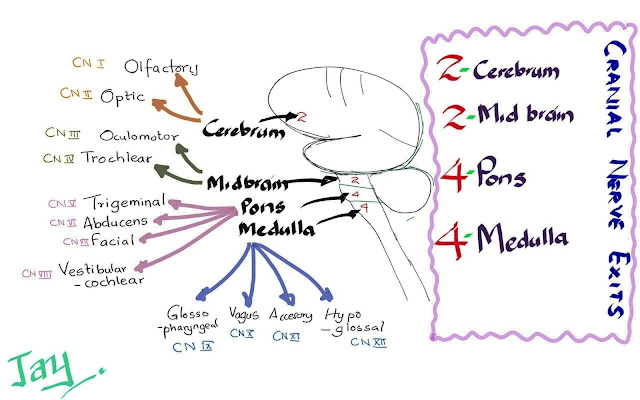 CN I Olfactory
CN II Optic
CN III Oculomotor
CN IV Trochlear
CN V Trigeminal
CN VI Abducens
CN VII Facial
CN VIII Vestibular
-cochlear
Cerebrum
Midbrain
Pons
Medulla
2
2
4
4
Glosso
-pharyngeal
CN IX
Vagus
CN X
Accesory
CN XI
Hypo
-glossal
CN XII
CRANIAL NERVE EXITS
2-Cerebrum
2-Mid brain
4-Pons
4-Medulla
Jay.